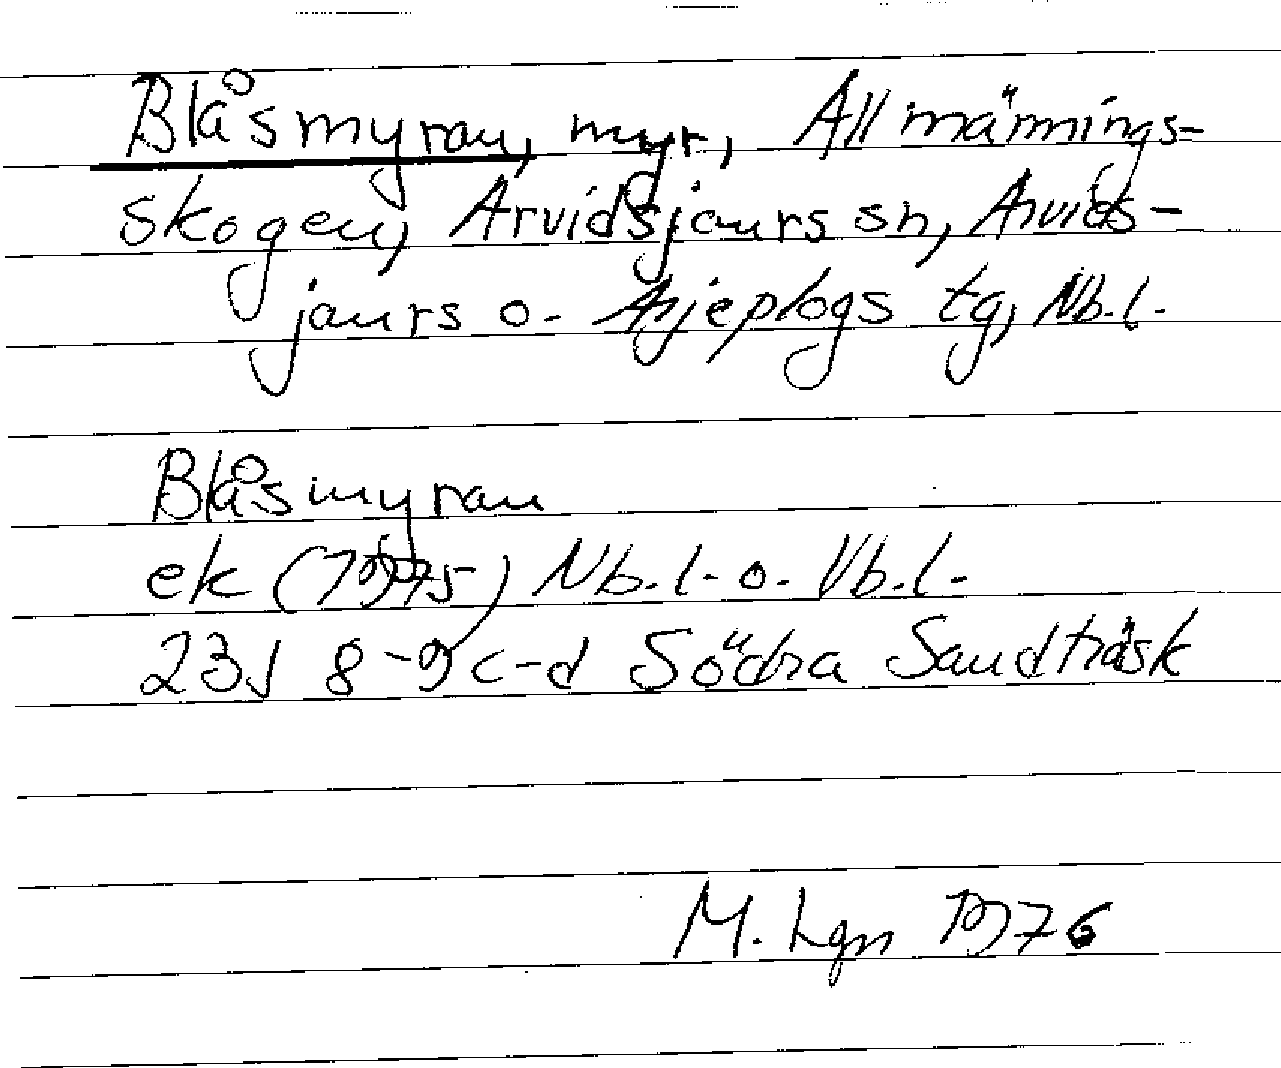 Blåsmyran, myr, Allmännings-
skogen, Arvidsjaurs sn, Arvids-
jaurs o. Arjeplogs tg, Nb.l.
Blåsmyran
ek (1975) Nb.l. o. Vb.l.
23J 8-9 c-d Södra Sandträsk
M. Lgn 1976